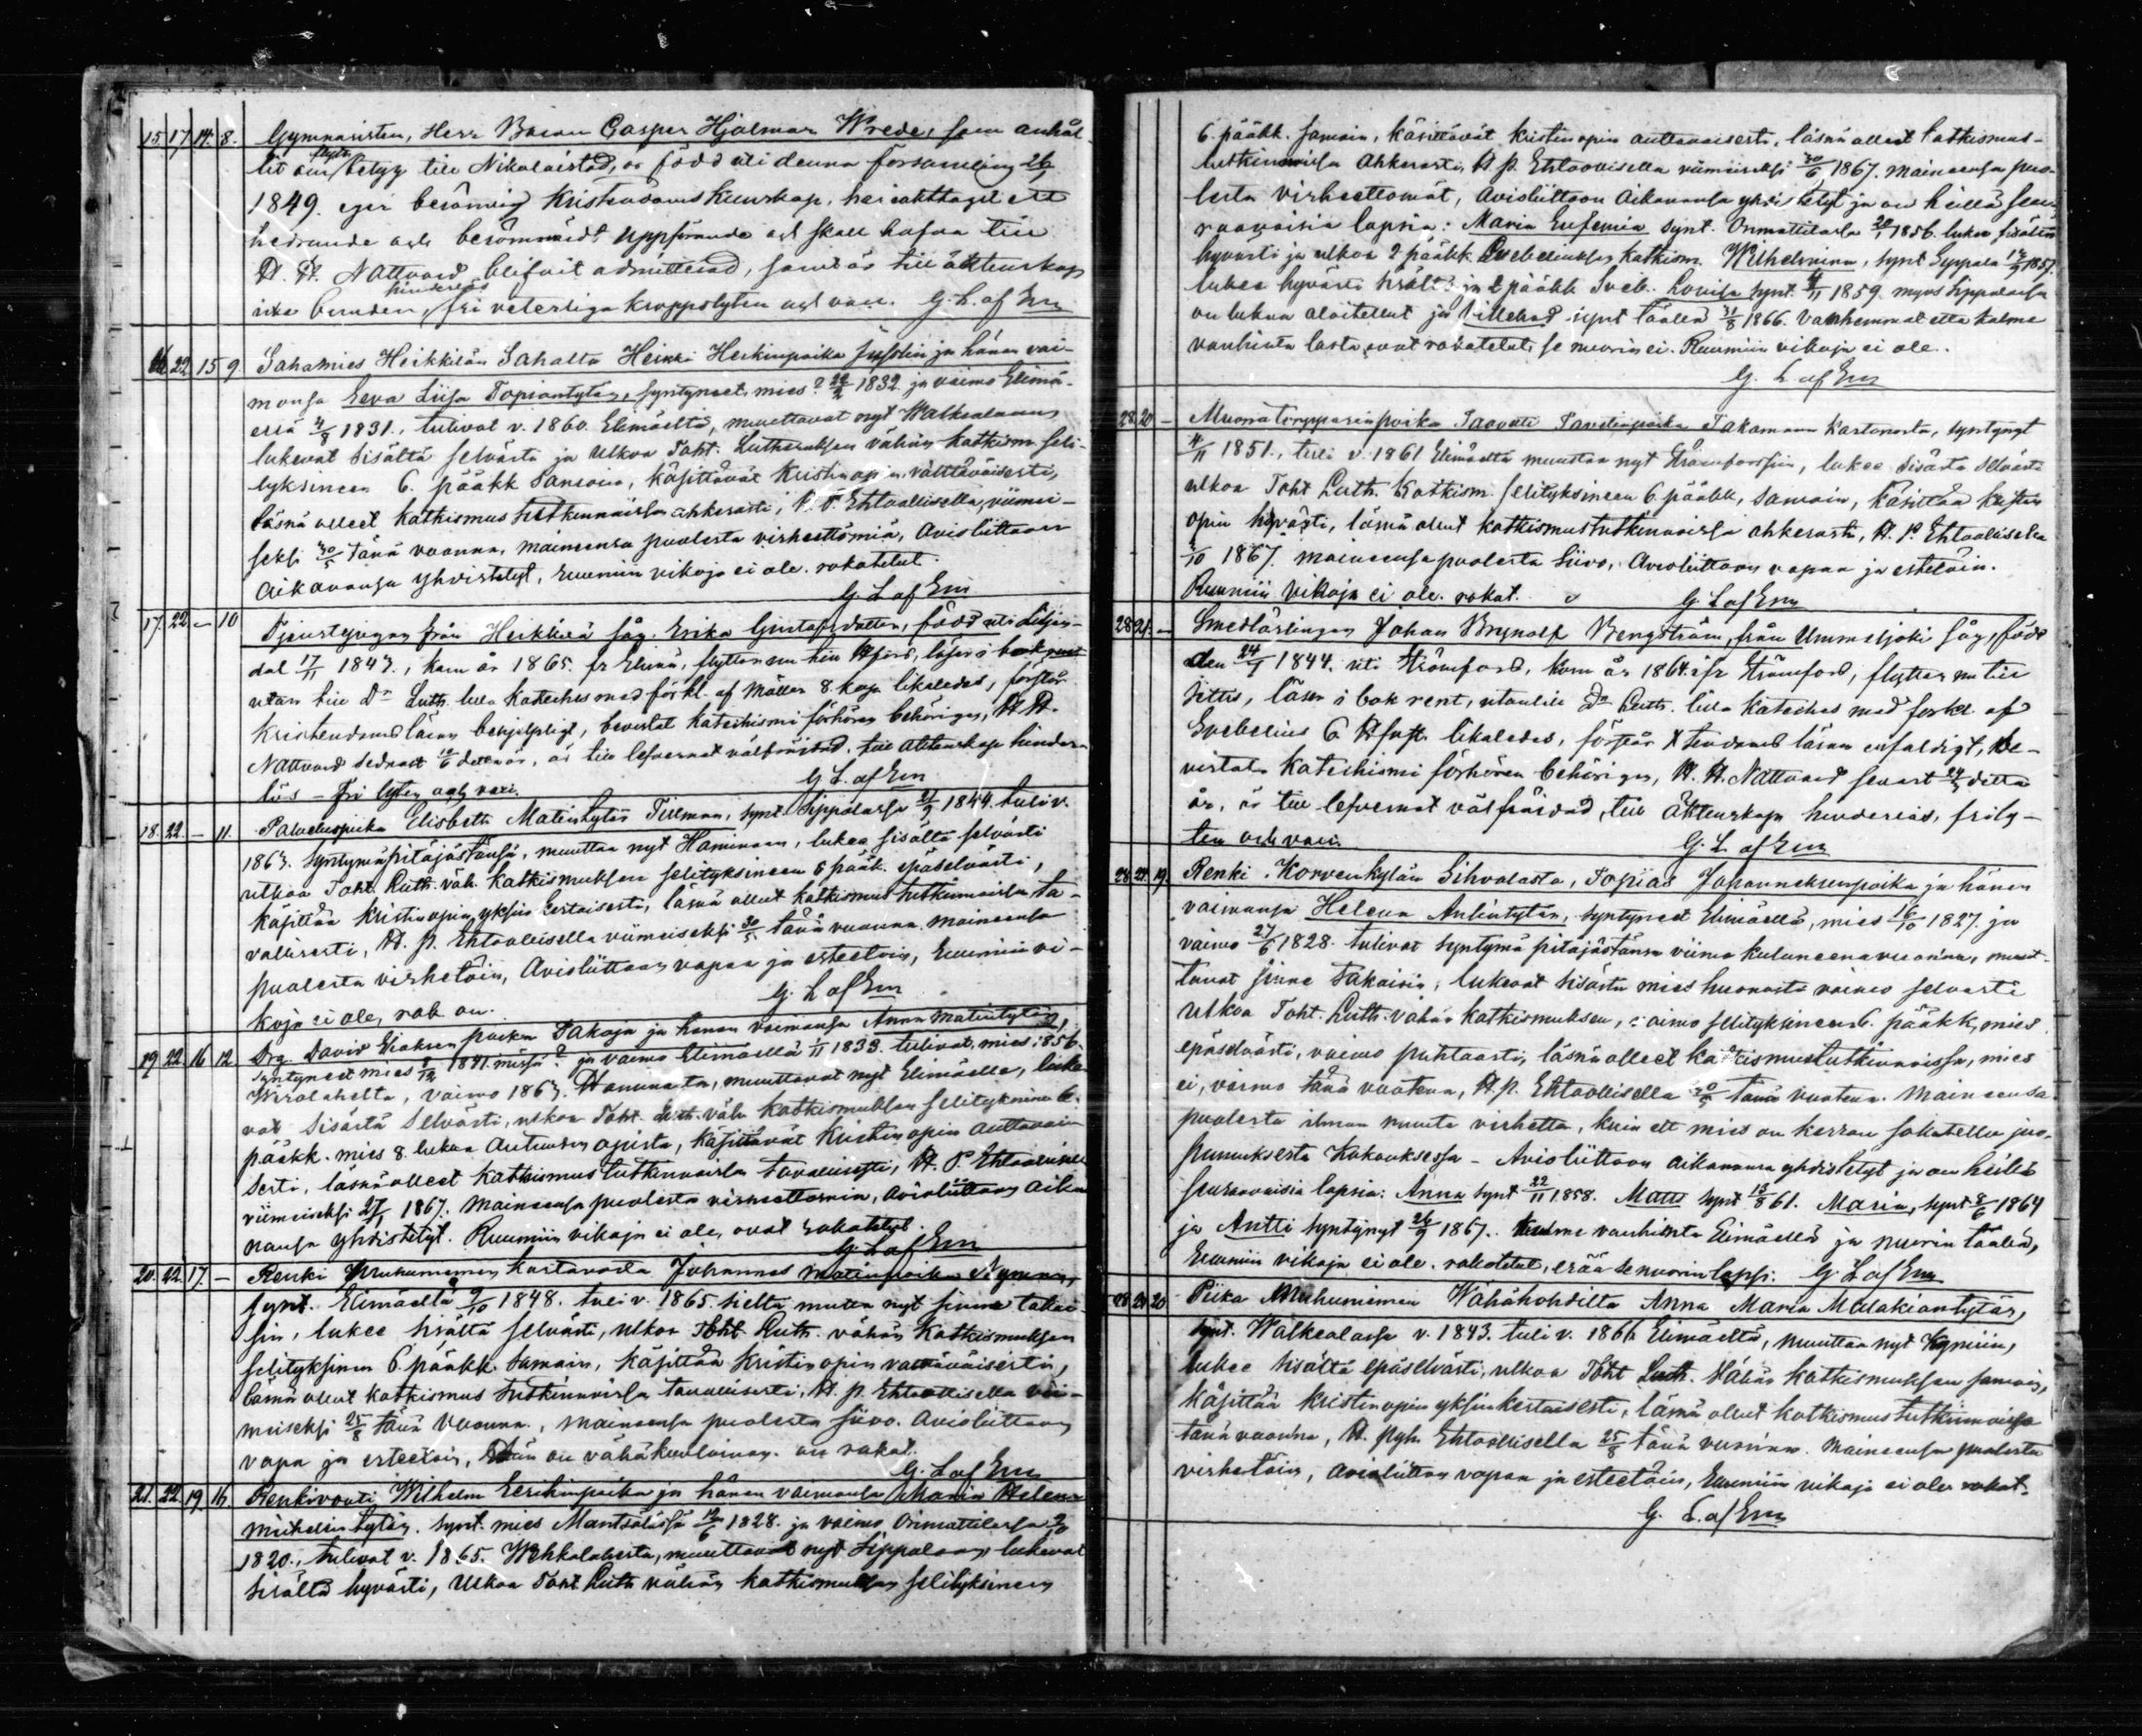 15. 17. 14. 8. Gymnasisten, Herr Baron Casper Hjalmar Wrede, som anhål-
lit om flytt betyg till Nikolaistad, är född uti denna församling 26/1
1849. eger berömlig Kristendoms Kunskap, har iakttagit ett
hedrande och berömvärdt uppförande och skall hafva till
H. H. Nattvard blifvit admitterad, samt är till äktenskap
icke bunden, hinderlös fri veterliga kroppslyten och vank. G. L. af Enn
16. 22. 15. 9. Sahamies Heikkilän Sahalta Heikki Heikinpoika ja hänen vai-
monsa Eeva Liisa Topiantytär, syntyneet mies ? 1832 ja vaimo Elimä-
ellä 4/8 1831., tulivat v. 1860. Elimäeltä, muuttavat nyt Walkealaan
lukevat sisältä selvästi ja ulkoa Toht. Lutheruksen vähän katkism. seli-
tyksineen 6. pääkk samoin, käsittävät Kristin opin välttäväisesti,
läsnä olleet katkismus tutkinnoissa ahkerasti, P. P. Ehtoollisella viimei-
seksi 30/5 tänä vuonna, maineensa puolesta virheettömiä, Avioliittoon
aikananssa yhdistetyt, ruumiin vikoja ei ole. rokotetut.
G. L. af Enn
17. 22. – 10 Tjenstepigan från Heikkilä såg. Erika Gustafsdotter, född uti Liljen-
dal 17/11 1843., kom år 1865. fr Elimä, flyttar nu till läser i bok rent
utan till Dr Luth. lilla Kateches med förkl. af Möller 8. kap likaledes, förstår
Kristendomsläran behjelpligt, bevistat katechismi förhören behörigen, H. H.
Nattvard sednast detta år, är till lefvernet välfrejdad, till äktenskap hinder-
lös – fri lyten och vank.
G. L. af Enn
18. 22. – 11. Palveluspiika Elisbeth Matintytär Tillman, synt. Sippolassa 21/9 1844. tuli v.
1863. syntymäpitäjästänsä, muuttaa nyt Haminaan, lukee sisältä selvästi
ulkoa Toht. Luth. väh. Katkismuksen selityksineen 6 pääk. epäselvästi,
käsittää kristin opin yksin kertaisesti, läsnä ollut katkismus tutkinnoissa ta-
vallisesti, H. p. Ehtoollisella viimeiseksi 30/5 tänä vuonna, maineensa
puolesta virhetöin, Avioliittoon vapaa ja esteetöin, Ruumiin vi-
koja ei ole, rok. on.
G. L. af Enn
19. 22. 16. 12. Drg. David Eliaksen poika Takaja ja hänen vaimonsa Anna Matintytär,
syntyneet mies 1841. missä? ja vaimo Elimäellä 1/11 1833. tulivat, mies 1856.
Wirolahelta, vaimo 1863. Haminasta, muuttavat nyt Elimäelle, luke-
vat sisästä selvästi, ulkoa Toht. Luth. väh. katkismuksen selityksineen 6.
pääkk. mies 8. lukua Autuuden opista, käsittävät Kristin opin auttavai-
sesti, läsnä olleet katkismus tutkinnoissa tavallisesti, H. P. Ehtoollisella
viimeiseksi 27/1 1867. maineensa puolesta virheettömiä, avioliittoon aika-
nansa yhdistetyt. Ruumiin vikoja ei ole, ovat rokotetut.
G. L. af Enn
20. 22. 17. – Renki Muhniemen kartanosta Johannes Matinpoika Nyman,
synt. Elimäellä 9/10 1848. tuli v. 1865. sieltä, muttaa nyt sinne takai-
sin, lukee sisältä selvästi, ulkoa Toht. Luth. vähän Katkismuksen
selityksineen 6. pääkk. samoin, käsittää kristin opin välttäväisesti,
läsnä ollut katkismus tutkinnoissa tavallisesti, H. p. Ehtoollisella vii-
meiseksi 25/8 tänä vuonna, maineensa puolesta siivo. Avioliittoon
vapa ja esteetöin, Hän on vähäkuuloinen. on rokot.
G. L. af Enn
21. 22. 19. 16. Renkivouti Wilhelm Eerikinpoika ja hänen vaimonsa Maria Helena
Mikelin tytär. synt. mies Mäntsälässä 12/6 1828. ja vaimo Orimattilassa
1820., tulivat v. 1865. Wehkalahesta, muuttavat nyt Sippolaan, lukevat
sisältä hyvästi, ulkoa Toht Luth vähän katkismuksen selityksineen
6. pääkk. samoin, käsittävät kristin opin auttavaisesti, läsnä olleet katkismus-
tutkinnoissa ahkerasti, H. p. Ehtoollisella viimeiseksi 30/6 1867. maineensa puo-
lesta virheettomät, avioliittoon aikanansa yhdistetyt ja on heillä seu-
raavaisia lapsia: Maria Eufemia synt. Orimattilassa 20/1 1856. lukee sisältä
hyvästi ja ulkoa 2 pääkk. Svebeliuksen katkism. Wilhelmina, synt Sippola 1857.
lukee hyvästi sisältä ja 2 pääkk. Sveb. Lovisa synt. 4/11 1859. myös Sippolassa
on lukua aloitellut ja Villehad synt täällä 31/8 1866. Vanhemmat että kolme
vanhinta lasta ovat rokotetut, se nuorin ei. Ruumiin vikoja ei ole.
G. L. af Enn
28. 20 – Muonatorpparinpoika Taavetti Taavetinpoika Takamaan Kartanosta, syntynyt
4/11 1851., tuli v. 1861 Elimäeltä muuttaa nyt Strömforssiin, lukee sisästä selvästi
ulkoa Toht Luth. Katkism. selityksineen 6. pääkk, samoin, käsittää kristin
opin hyvästi, läsnä ollut katkismustutkinnoissa ahkerasti, H. P. Ehtoollisella
/10 1867. maineensa puolesta siivo, Avioliittoon vapaa ja estetöin.
Ruumiin vikoja ei ole. rokot.
G. L. af Enn
28. 21. – Smedlärlingen Johan Brynolf Bergström, från Ummeljoki såg, född
den 24/9 1844. uti Strömfors, kom år 1864. ifr Strömfors, flyttar nu till
Jittis, läser i bok rent, utantill Dr Luth. lilla Kateches med forkl. af
Svebelius 6 Hfst. likaledes, förstår Xtendoms läran enfaldigt, be-
vistat Katechismi förhören behörigen, H. H. Nattvard senast detta
år, är till lefvernet välfräjdad, till Äktenskap hinderlös, fri ly-
ten och vank.
G. L. af Enn
28. 22. 19. Renki Korvenkylän Sihvolasta, Topias Johanneksenpoika ja hänen
vaimonsa Helena Antintytär, syntyneet Elimäellä, mies 16/10 1827. ja
vaimo 27/6 1828. tulivat syntymä pitäjästänsä viime kuluneena vuonna, muut-
tavat sinne takaisin, lukevat sisästä mies huonosti vaimo selvästi
ulkoa Toht. Luth. vähän katkismuksen, vaimo selityksineen 6. pääkk, mies
epäselvästi, vaimo puhtaasti, läsnä olleet katkismustutkinnoissa, mies
ei, vaimo tänä vuotena, H. p. Ehtoollisella tänä vuotena. Maineensa
puolesta ilman muuta virhettä, kuin että mies on kerran sakotettu juo-
pumuksesta Kokouksessa – Avioliittoon aikanansa yhdistetyt ja on heillä
seuraavaisia lapsia: Anna synt 22/11 1858. Matti synt 13/8 61. Maria, synt 8/6 1864
ja Antti syntynyt 26/9 1867. kolme vanhinta Elimäellä ja nuorin täällä,
Ruumiin vikoja ei ole. rokotetut, erää se nuorin lapsi. G. L. af Enn
28. 20. 20 Piika Muhniemen Wähäkohdilta Anna Maria Malakiantytär,
synt. Walkealassa v. 1843. tuli v. 1866 Elimäeltä, muuttaa nyt Kymiin,
lukee sisältä epäselvästi, ulkoa Toht Luth. vähän katkismuksen samoin,
käsittää Kristin opin yksinkertaisesti, läsnä ollut katkismustutkinnoissa
tänä vuonna, H. Pyh. Ehtoollisella 25/8 tänä vuonna. Maineensa puolesta
virhetöin, avioliittoon vapaa ja esteetöin, Ruumiin vikoja ei ole. rokot.
G. L. af Enn